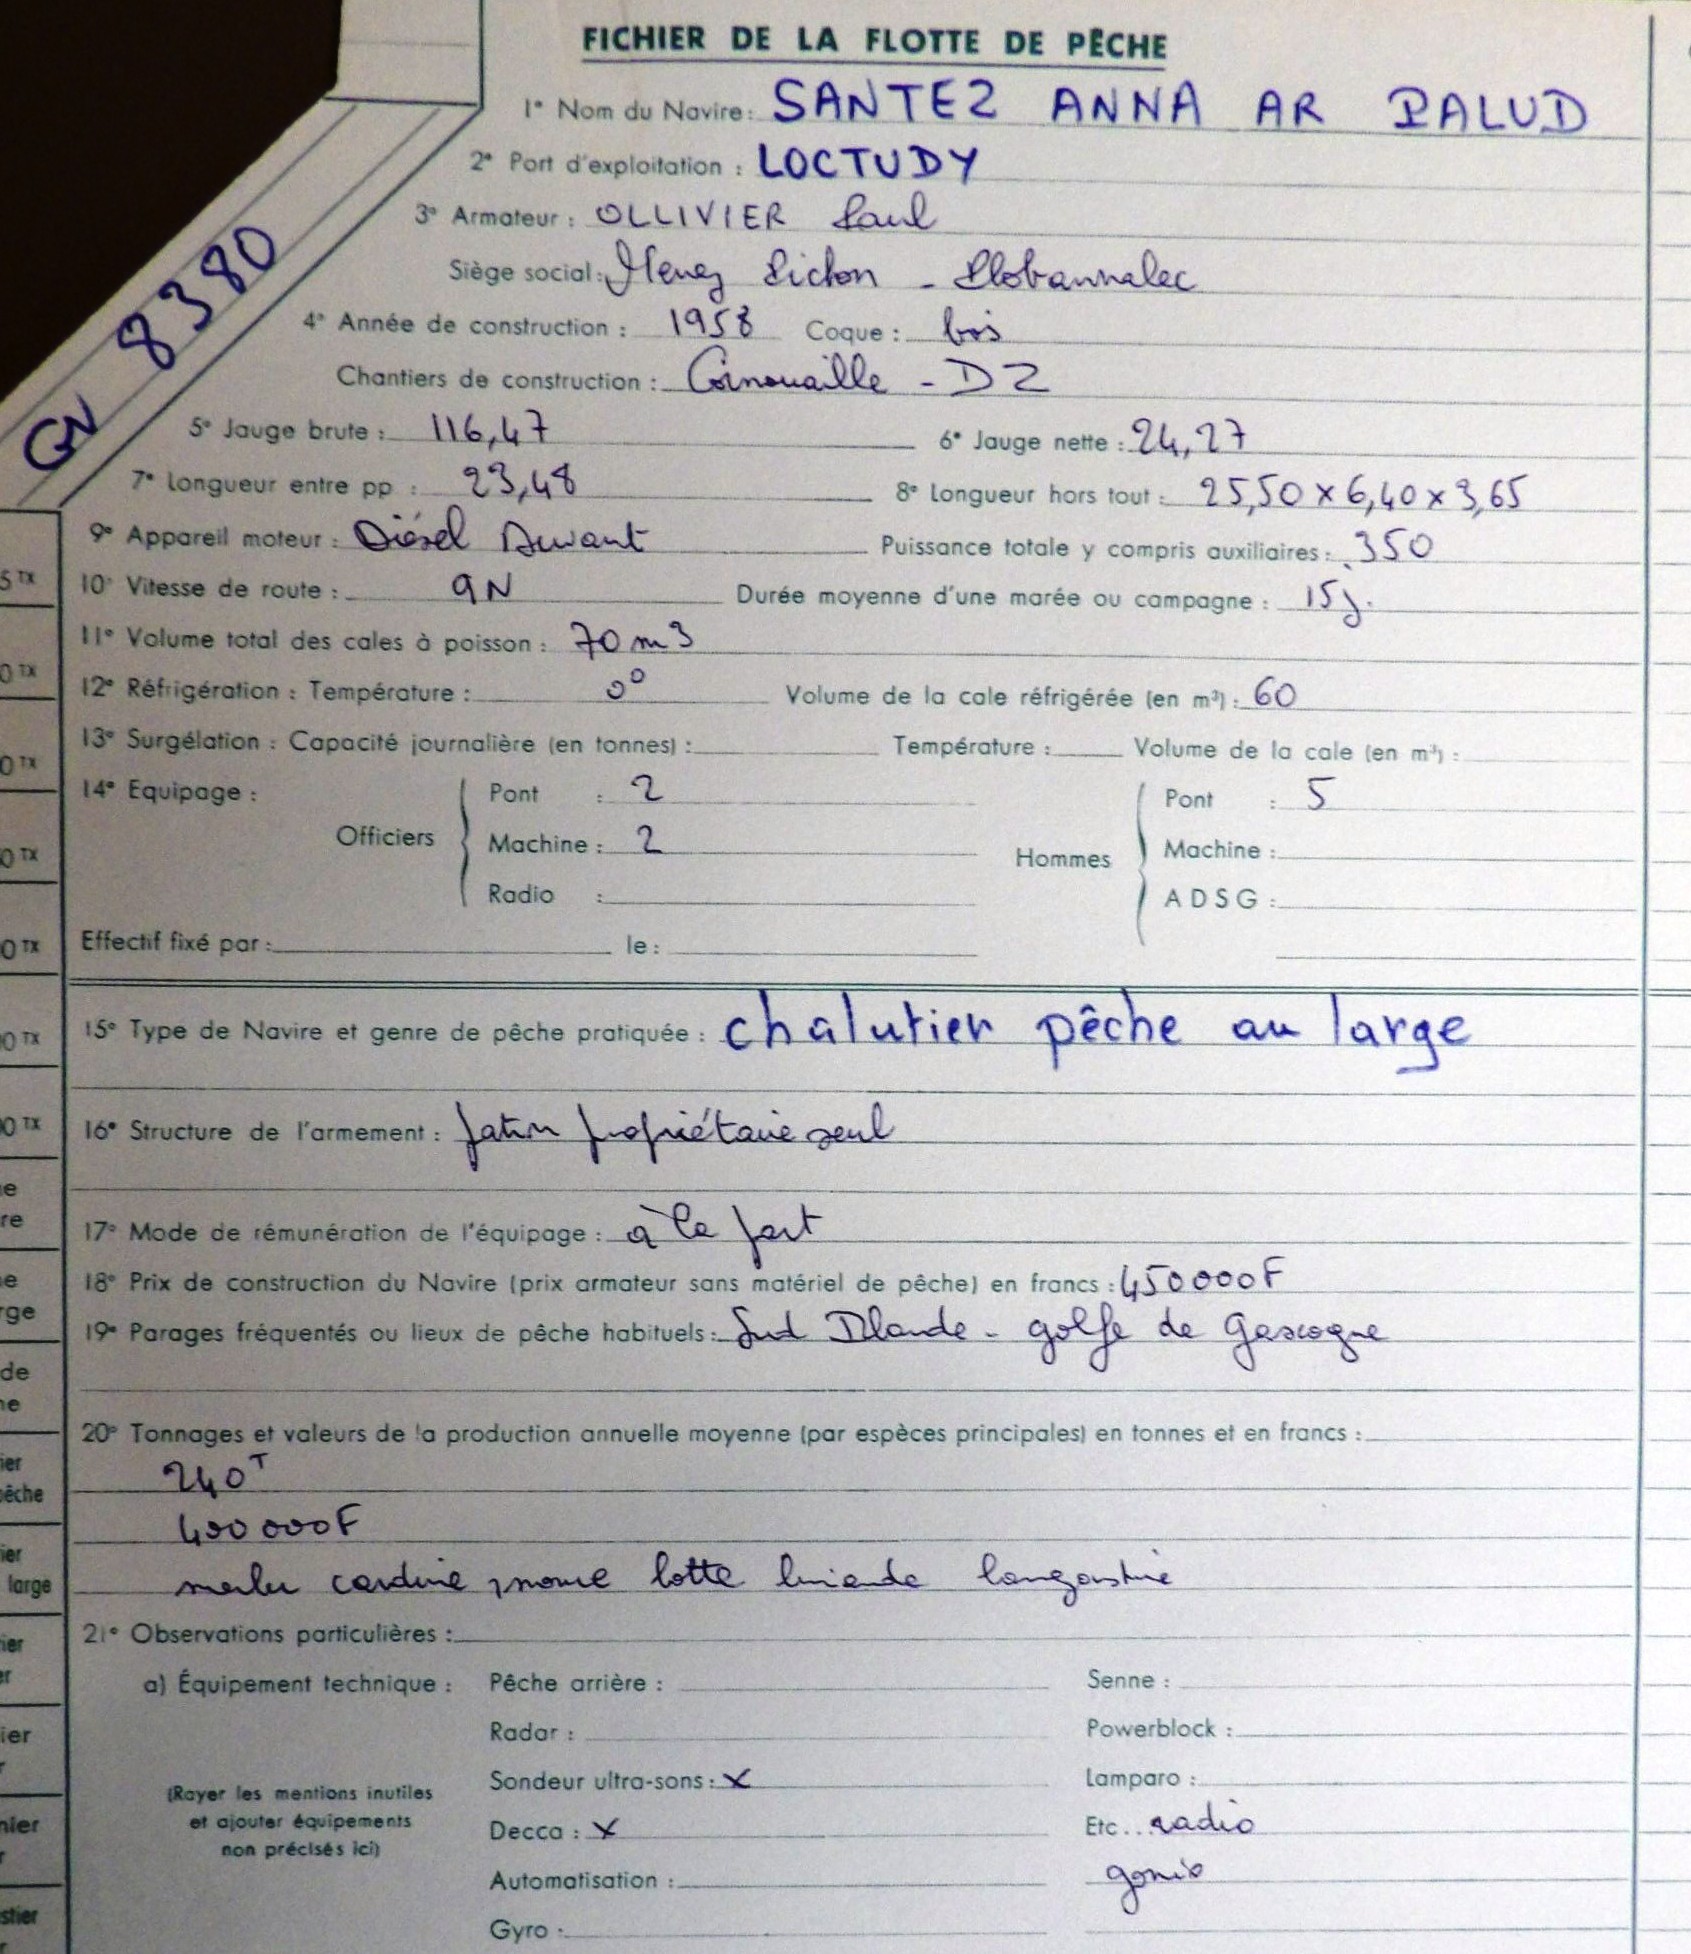 FICHIER DE LA FLOTTE DE PÊCHE
1° Nom du Navire : SANTEZ ANNA AR PALUD
2° Port d'exploitation : LOCTUDY
3° Armateur : OLLIVIER Paul
Siège social : Menez Pichon - Plobannalec
GV 8380
4° Année de construction : 1958 Coque : bois
Chantiers de construction : Cornouaille - DZ
5° Jauge brute : 116,47 6° Jauge nette : 24,27
7° Longueur entre pp : 23,48 8° Longueur hors tout : 25,50 x 6,40 x 3,65
9° Appareil moteur : Diésel Duvant Puissance totale y compris auxiliaires : 350
10° Vitesse de route : 9N Durée moyenne d'une marée ou campagne : 15j.
11° Volume total des cales à poisson : 70 m3
12° Réfrigération : Température : 0° Volume de la cale réfrigérée (en m³) : 60
13° Surgélation : Capacité journalière (en tonnes) : Température : Volume de la cale (en m³) :
14° Equipage :
Officiers
Pont : 2
Machine : 2
Radio :
Hommes
Pont : 5
Machine :
A D S G :
Effectif fixé par : le :
15° Type de Navire et genre de pêche pratiquée : chalutier pêche au large
16° Structure de l'armement : patron propriétaire seul
17° Mode de rémunération de l'équipage : à la part
18° Prix de construction du Navire (prix armateur sans matériel de pêche) en francs : 450000F
19° Parages fréquentés ou lieux de pêche habituels : Sud Irlande - golfe de Gascogne
20° Tonnages et valeurs de la production annuelle moyenne (par espèces principales) en tonnes et en francs :
240T
400 000F
merlu cardine, morue lotte limande langoustine
21° Observations particulières :
a) Équipement technique :
(Rayer les mentions inutiles
et ajouter équipements
non précisés ici)
Pêche arrière :
Radar :
Sondeur ultra-sons : x
Decca : x
Automatisation :
Gyro :
Senne :
Powerblock :
Lamparo :
Etc.. radio
gonio